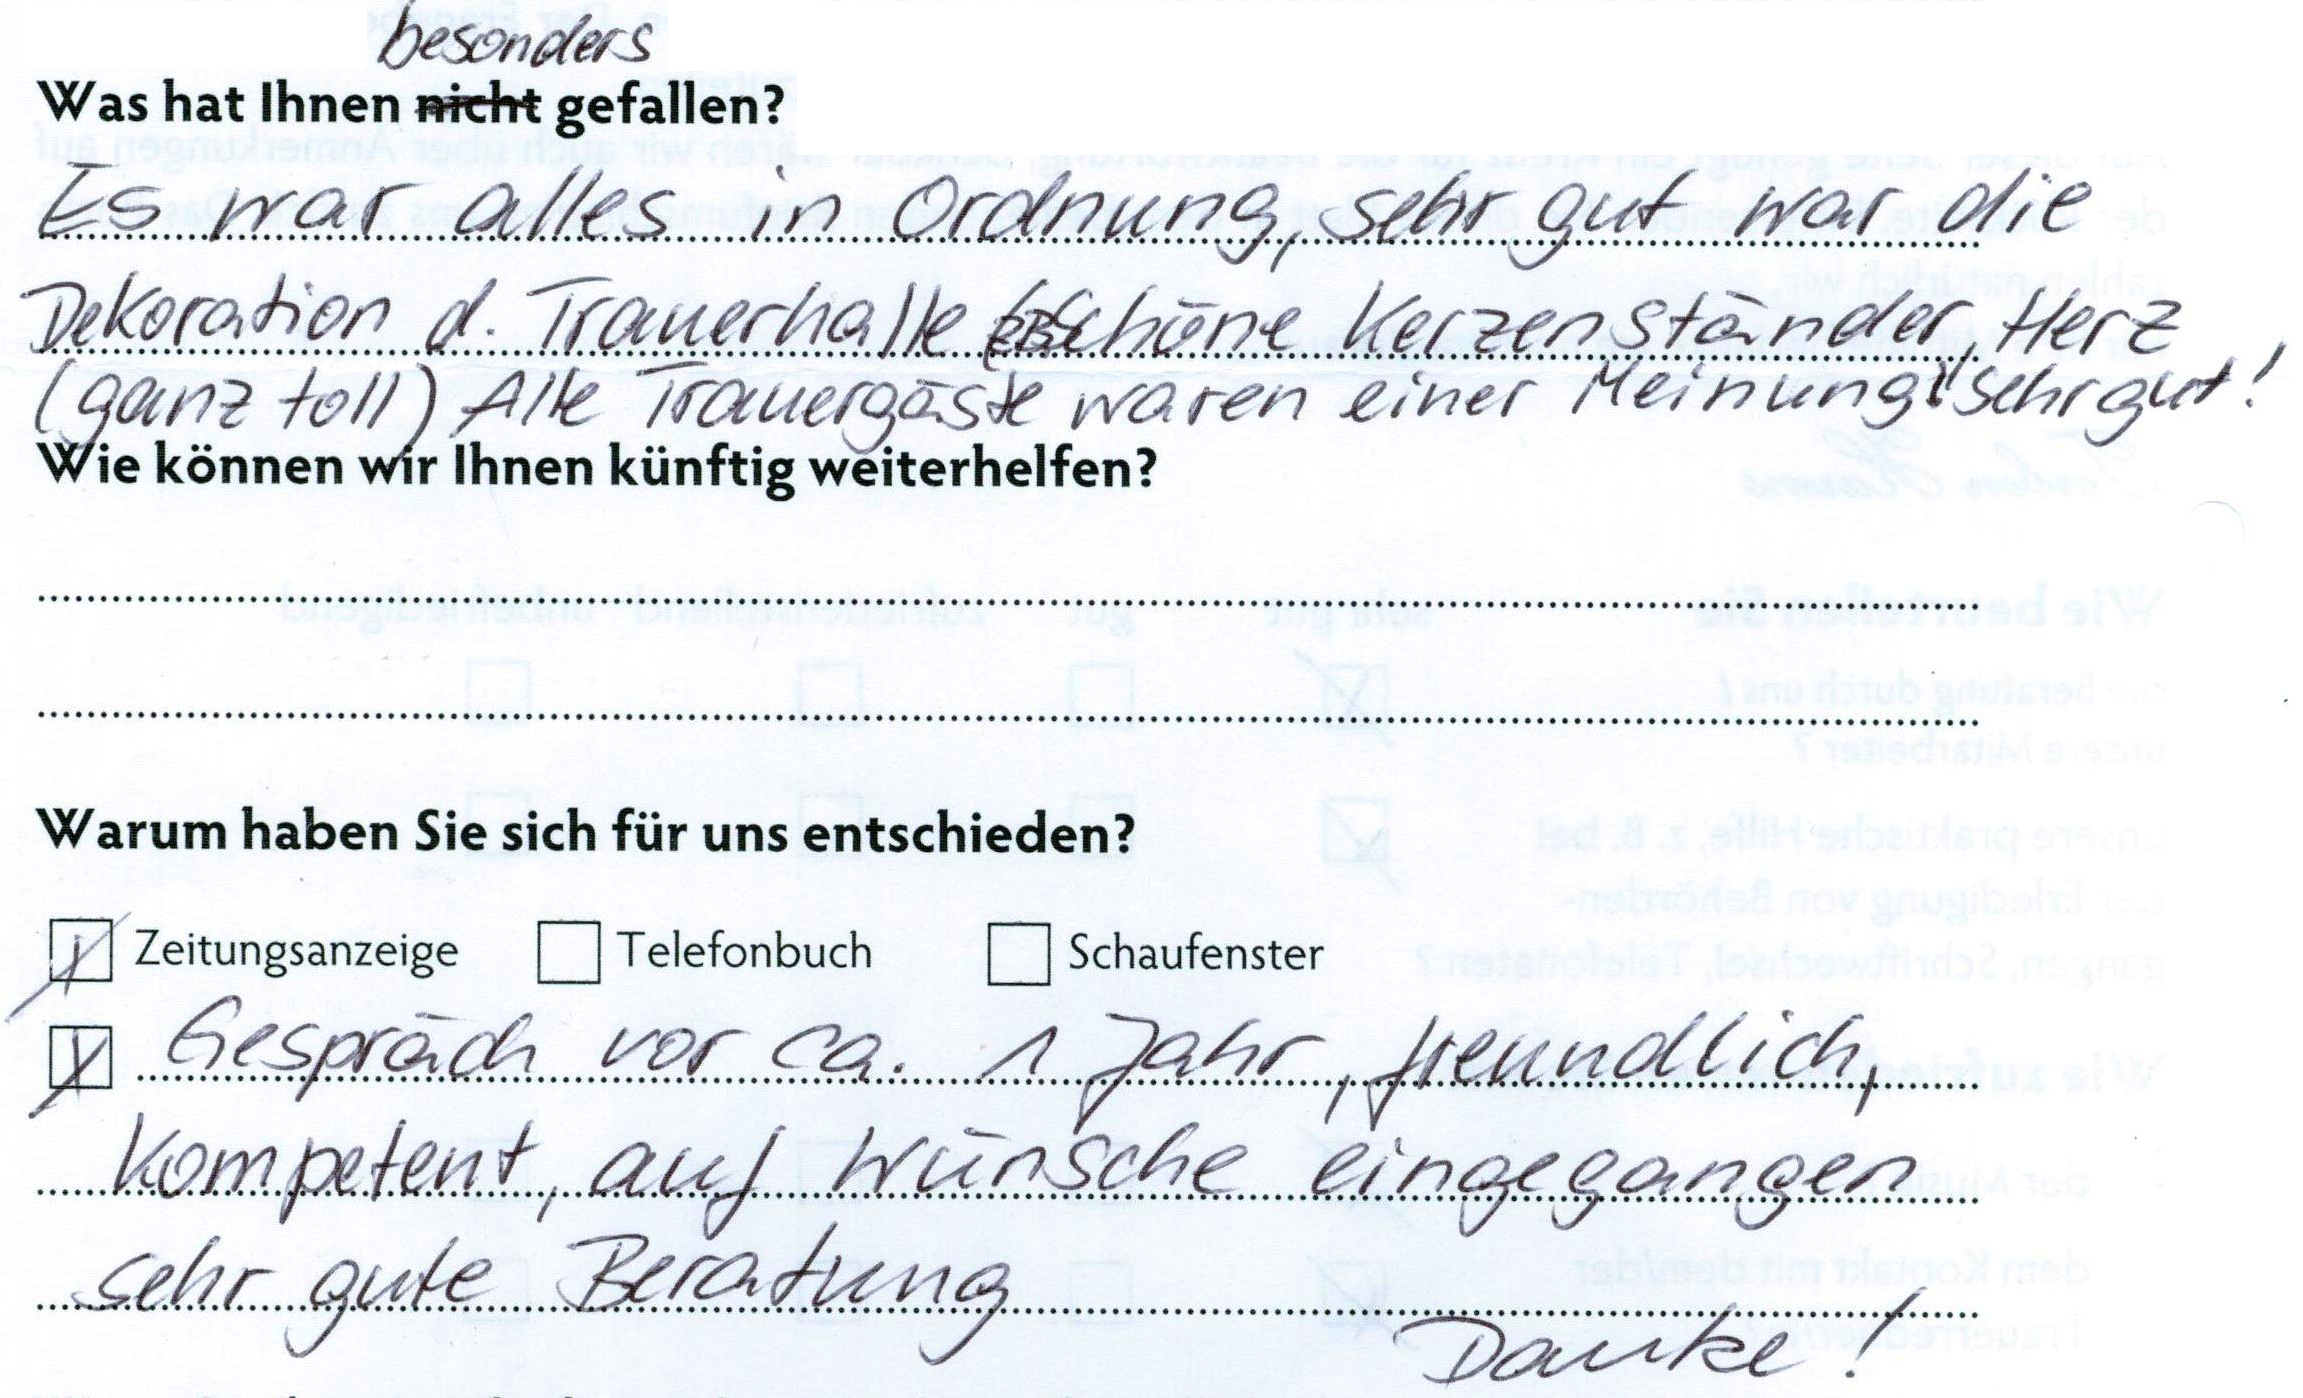 besonders
Was hat Ihnen nicht gefallen?
Es war alles in Ordnung, sehr gut war die
Dekoration d. Trauerhalle (zB Schöne Kerzenständer, Herz
(ganz toll) Alle Trauergäste waren einer Meinung, sehr gut!
Wie können wir Ihnen künftig weiterhelfen?
Warum haben Sie sich für uns entschieden?
Zeitungsanzeige Telefonbuch Schaufenster
Gespräch vor ca. 1 Jahr, freundlich,
Kompetent, auf Wünsche eingegangen
sehr gute Beratung
Danke!